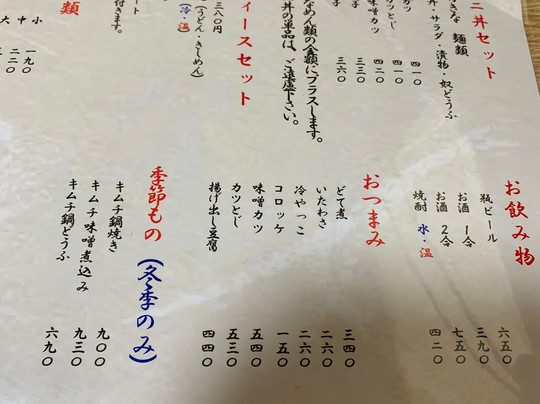 ニ丼セット
きな 麺類
丼・サラダ・漬物・奴どうふ
カツ 四一〇
味噌カツ 四二〇
とじ 三三〇
子 三六〇
なめん類の金額にプラスします。
丼の単品は、ご遠慮下さい。
ィースセット
三八〇円
(うどん・きしめん)
(冷・温)
ート
付きます。
類
小 一九〇
中 二二〇
大
お飲み物
瓶ビール 六五〇
お酒 1合 三九〇
お酒 2合 七五〇
焼酎 水・温 四二〇
おつまみ
どて煮 三四〇
いたわさ 二六〇
冷やっこ 二六〇
コロッケ 一五〇
味噌カツ 五四〇
カツとじ 五三〇
揚げ出し豆腐 四四〇
季節もの (冬季のみ)
キムチ鍋焼き 九〇〇
キムチ味噌煮込み 九三〇
キムチ鍋どうふ 六九〇